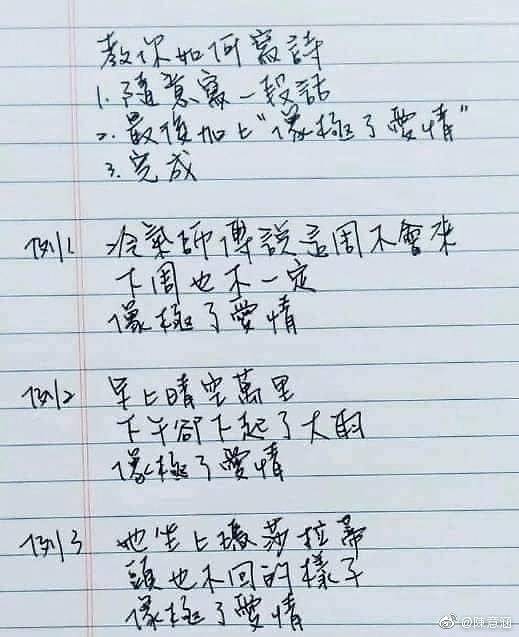 教你如何寫詩
1. 隨意寫一段話
2. 最後加上"像極了愛情"
3. 完成
例1 冷氣師傅說這周不會來
下周也不一定
像極了愛情
例2 早上晴空萬里
下午卻下起了大雨
像極了愛情
例3 她坐上瑪莎拉蒂
頭也不回的樣子
像極了愛情
@陳意涵